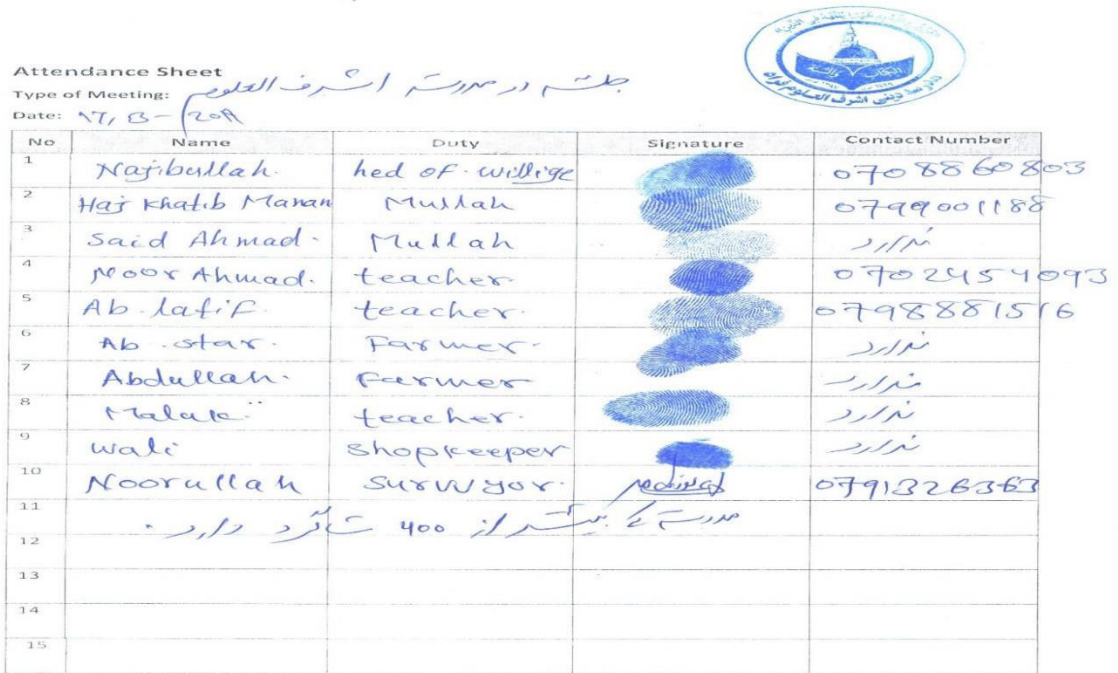 Attendance Sheet
Type of Meeting: جلسه در مدرسه اشرف العلوم
Date: 17, 13 - 2019
No Name Duty Signature Contact Number
1 Najibullah. hed of willige 0708860803
2 Haj Khatib Manan Mullah 0799001188
3 Said Ahmad. Mullah ندارد
4 Noor Ahmad. teacher. 0702454093
5 Ab. latif. teacher. 0798881516
6 Ab. star. Farmer. ندارد
7 Abdullah. Farmer ندارد
8 Malak teacher. ندارد
9 wali Shopkeeper ندارد
10 Noorullah Survyor. 0791326363
11
مدرسه بیشتر از 400 شاگرد دارد.
12
13
14
15